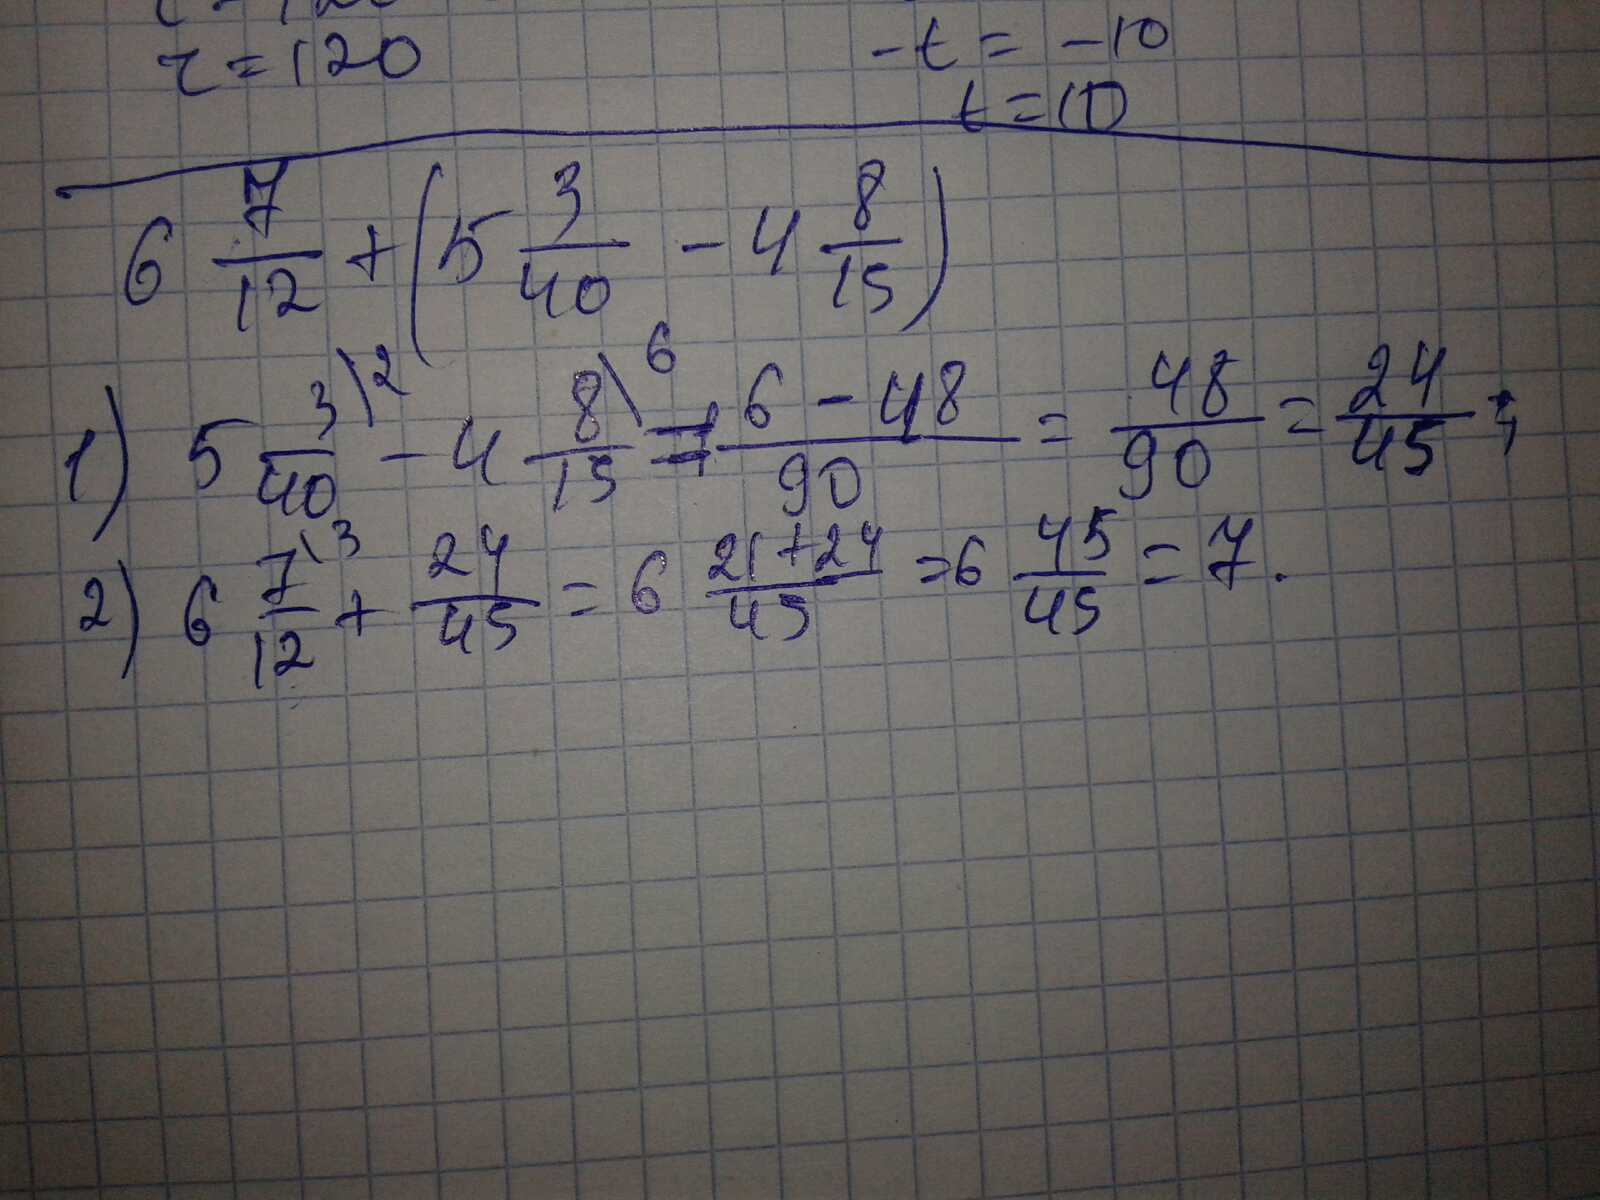 r = 120
-t = -10
t = 10
6 7/12 + (5 3/40 - 4 8/15)
1) 5 3\2/40 - 4 8\6/15 = 1 6-48/90 = 48/90 = 24/45;
2) 6 7\3/12 + 24/45 = 6 21+24/45 = 6 45/45 = 7.